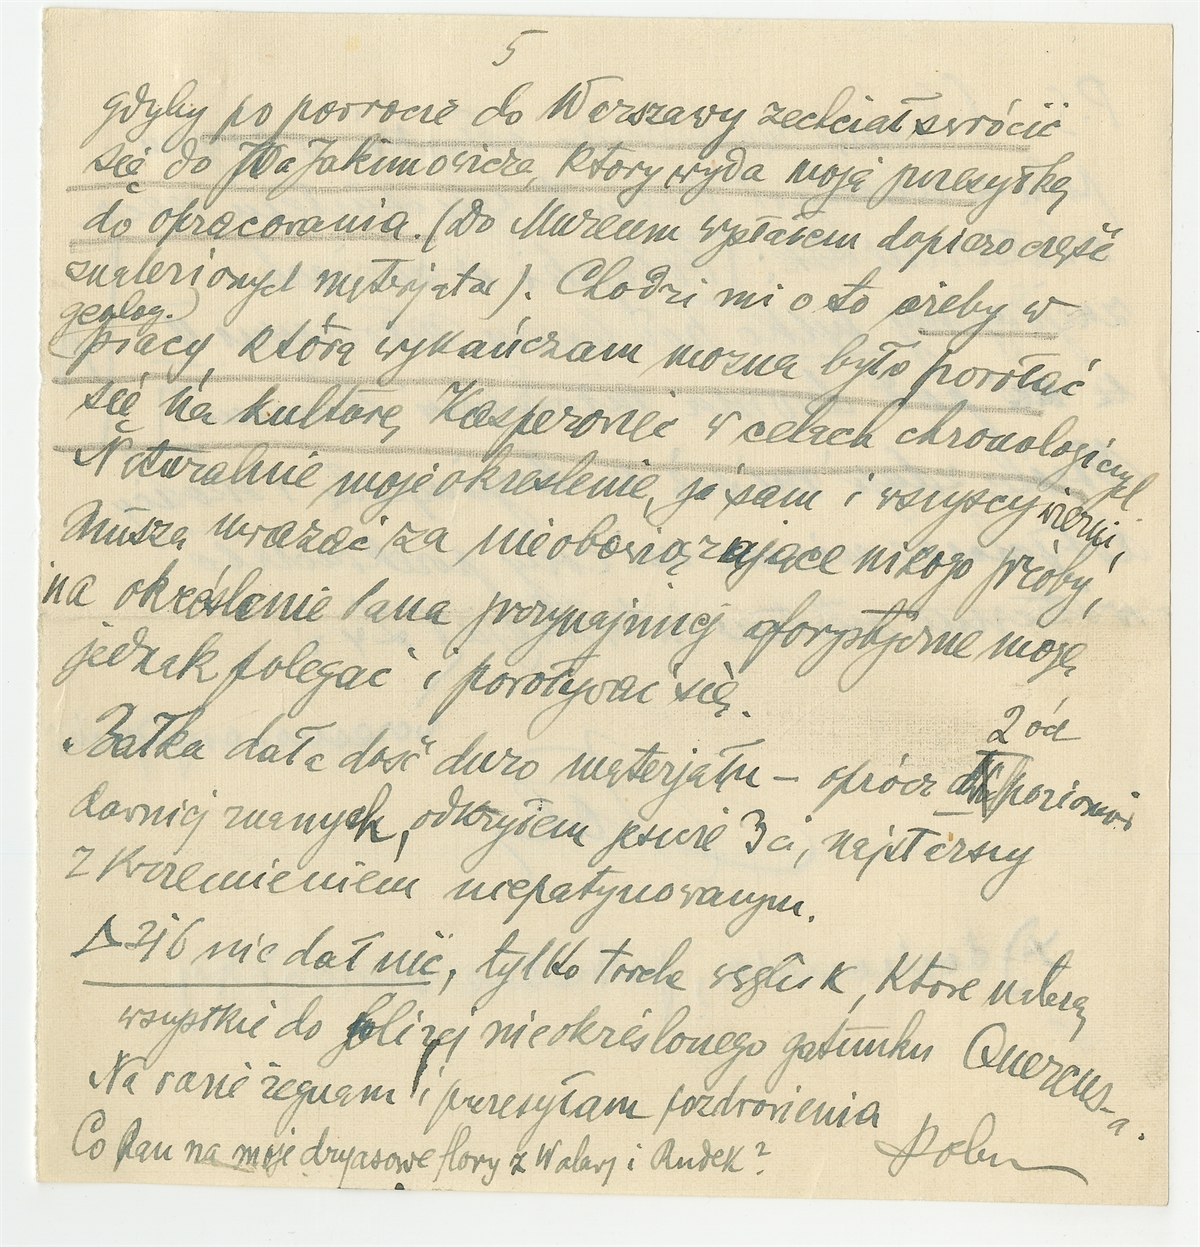 5
gdyby po powrocie do Warszawy zechciał zwrócić
się do Jakimowicza, który wyda moją przesyłkę
do opracowania. (Do Muzeum wysłałem dopiero część
znalezionych materjałów). Chodzi mi o to ażeby w
geolog.
pracy, którą wykańczam można było powołać
się na kulturę Kasperowiec w celach chronologicznych.
Naturalnie moje określenie, ja sam i wszyscy wierni,
muszą uważać za nieobowiązujące nikogo próby,
na określenie Pana przynajmniej aforystyczne mogę
jednak polegać i powoływać się.
Bałka dała dość dużo materjału – oprócz 2 od poziomów
dawniej znanych, odkryłem jeszcze 3 ci, najstarszy
z krzemieniem niepatynowanym.
nic dał nic, tylko trochę węgli, które należą
wszystkie do bliżej nieokreślonego gatunku Quercus-a.
Na razie żegnam i przesyłam pozdrowienia
Co Pan na moje dryasowe flory z i Rudek?